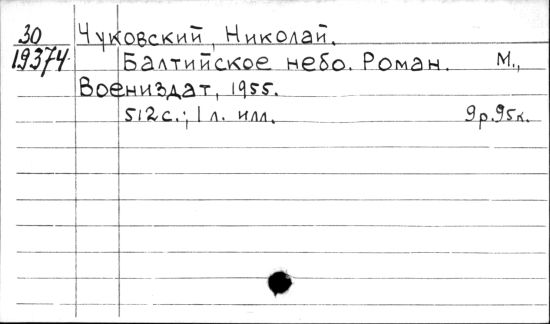 30 Чуковский, Николай.
19374 Балтийское небо. Роман. М.,
Воениздат, 1955.
512 с.; 1 л. илл. 9р.95к.